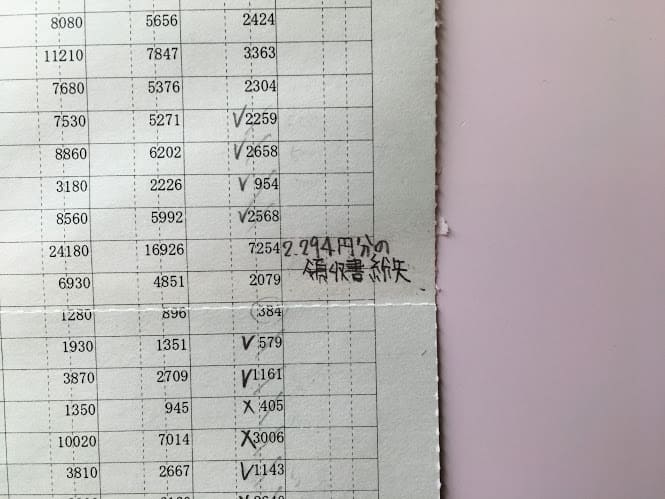 8080 5656 2424
11210 7847 3363
7680 5376 2304
7530 5271 ✓2259
8860 6202 ✓2658
3180 2226 ✓954
8560 5992 ✓2568
24180 16926 7254 2.294円分の
領収書紛失
6930 4851 2079
1280 896 384
1930 1351 ✓579
3870 2709 ✓1161
1350 945 ×405
10020 7014 ×3006
3810 2667 ✓1143